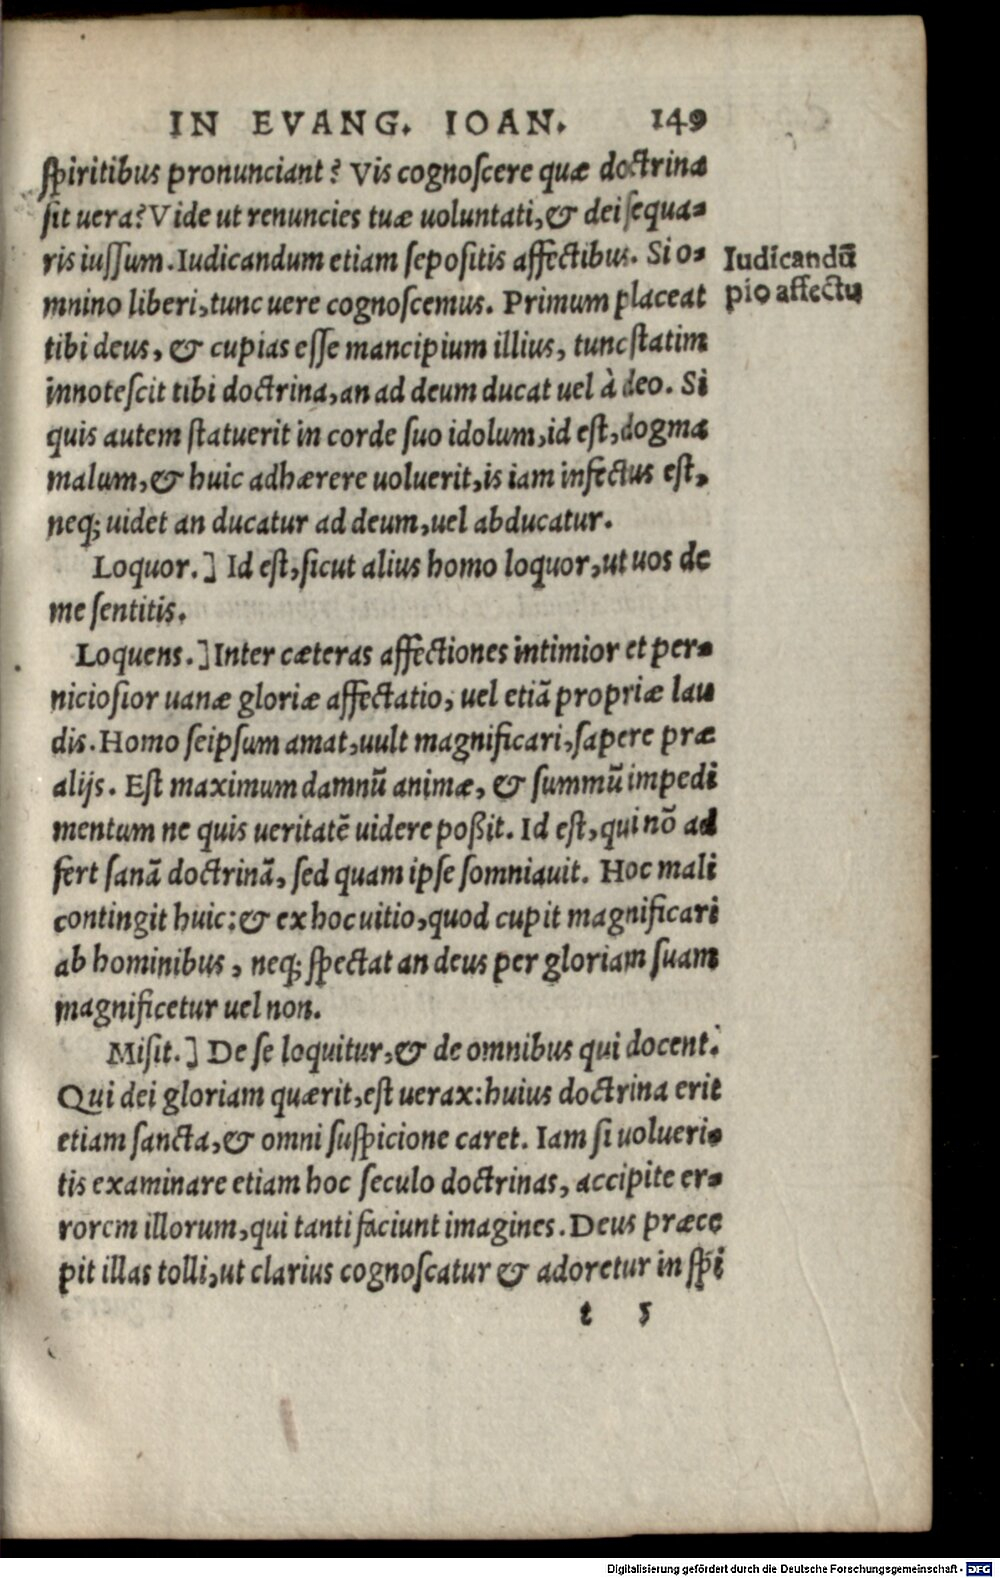 IN EVANG. IOAN. 149
ſpiritibus pronunciant? Vis cognoſcere quæ doctrina
ſit uera? Vide ut renuncies tuæ uoluntati, & dei ſequa⸗
ris iuſſum. Iudicandum etiam ſepoſitis affectibus. Si o⸗
Iudicandū
mnino liberi, tunc uere cognoſcemus. Primum placeat
pio affectu
tibi deus, & cupias eſſe mancipium illius, tunc ſtatim
innoteſcit tibi doctrina, an ad deum ducat uel à deo. Si
quis autem ſtatuerit in corde ſuo idolum, id eſt, dogma
malum, & huic adhærere uoluerit, is iam infectus eſt,
neq; uidet an ducatur ad deum, uel abducatur.
Loquor.] Id eſt, ſicut alius homo loquor, ut uos de
me ſentitis.
Loquens.] Inter cæteras affectiones intimior et per⸗
nicioſior uanæ gloriæ affectatio, uel etiā propriæ lau
dis. Homo ſeipſum amat, uult magnificari, ſapere præ
alijs. Eſt maximum damnū animæ, & ſummū impedi
mentum ne quis ueritatē uidere poßit. Id eſt, qui nō ad
fert ſanā doctrinā, ſed quam ipſe ſomniauit. Hoc mali
contingit huic: & ex hoc uitio, quod cupit magnificari
ab hominibus, neq; ſpectat an deus per gloriam ſuam
magnificetur uel non.
Miſit.] De ſe loquitur, & de omnibus qui docent.
Qui dei gloriam quærit, eſt uerax: huius doctrina erit
etiam ſancta, & omni ſuſpicione caret. Iam ſi uolueri⸗
tis examinare etiam hoc ſeculo doctrinas, accipite er⸗
rorem illorum, qui tanti faciunt imagines. Deus præce
pit illas tolli, ut clarius cognoſcatur & adoretur in ſpi
t 5
Digitalisierung gefördert durch die Deutsche Forschungsgemeinschaft - DFG